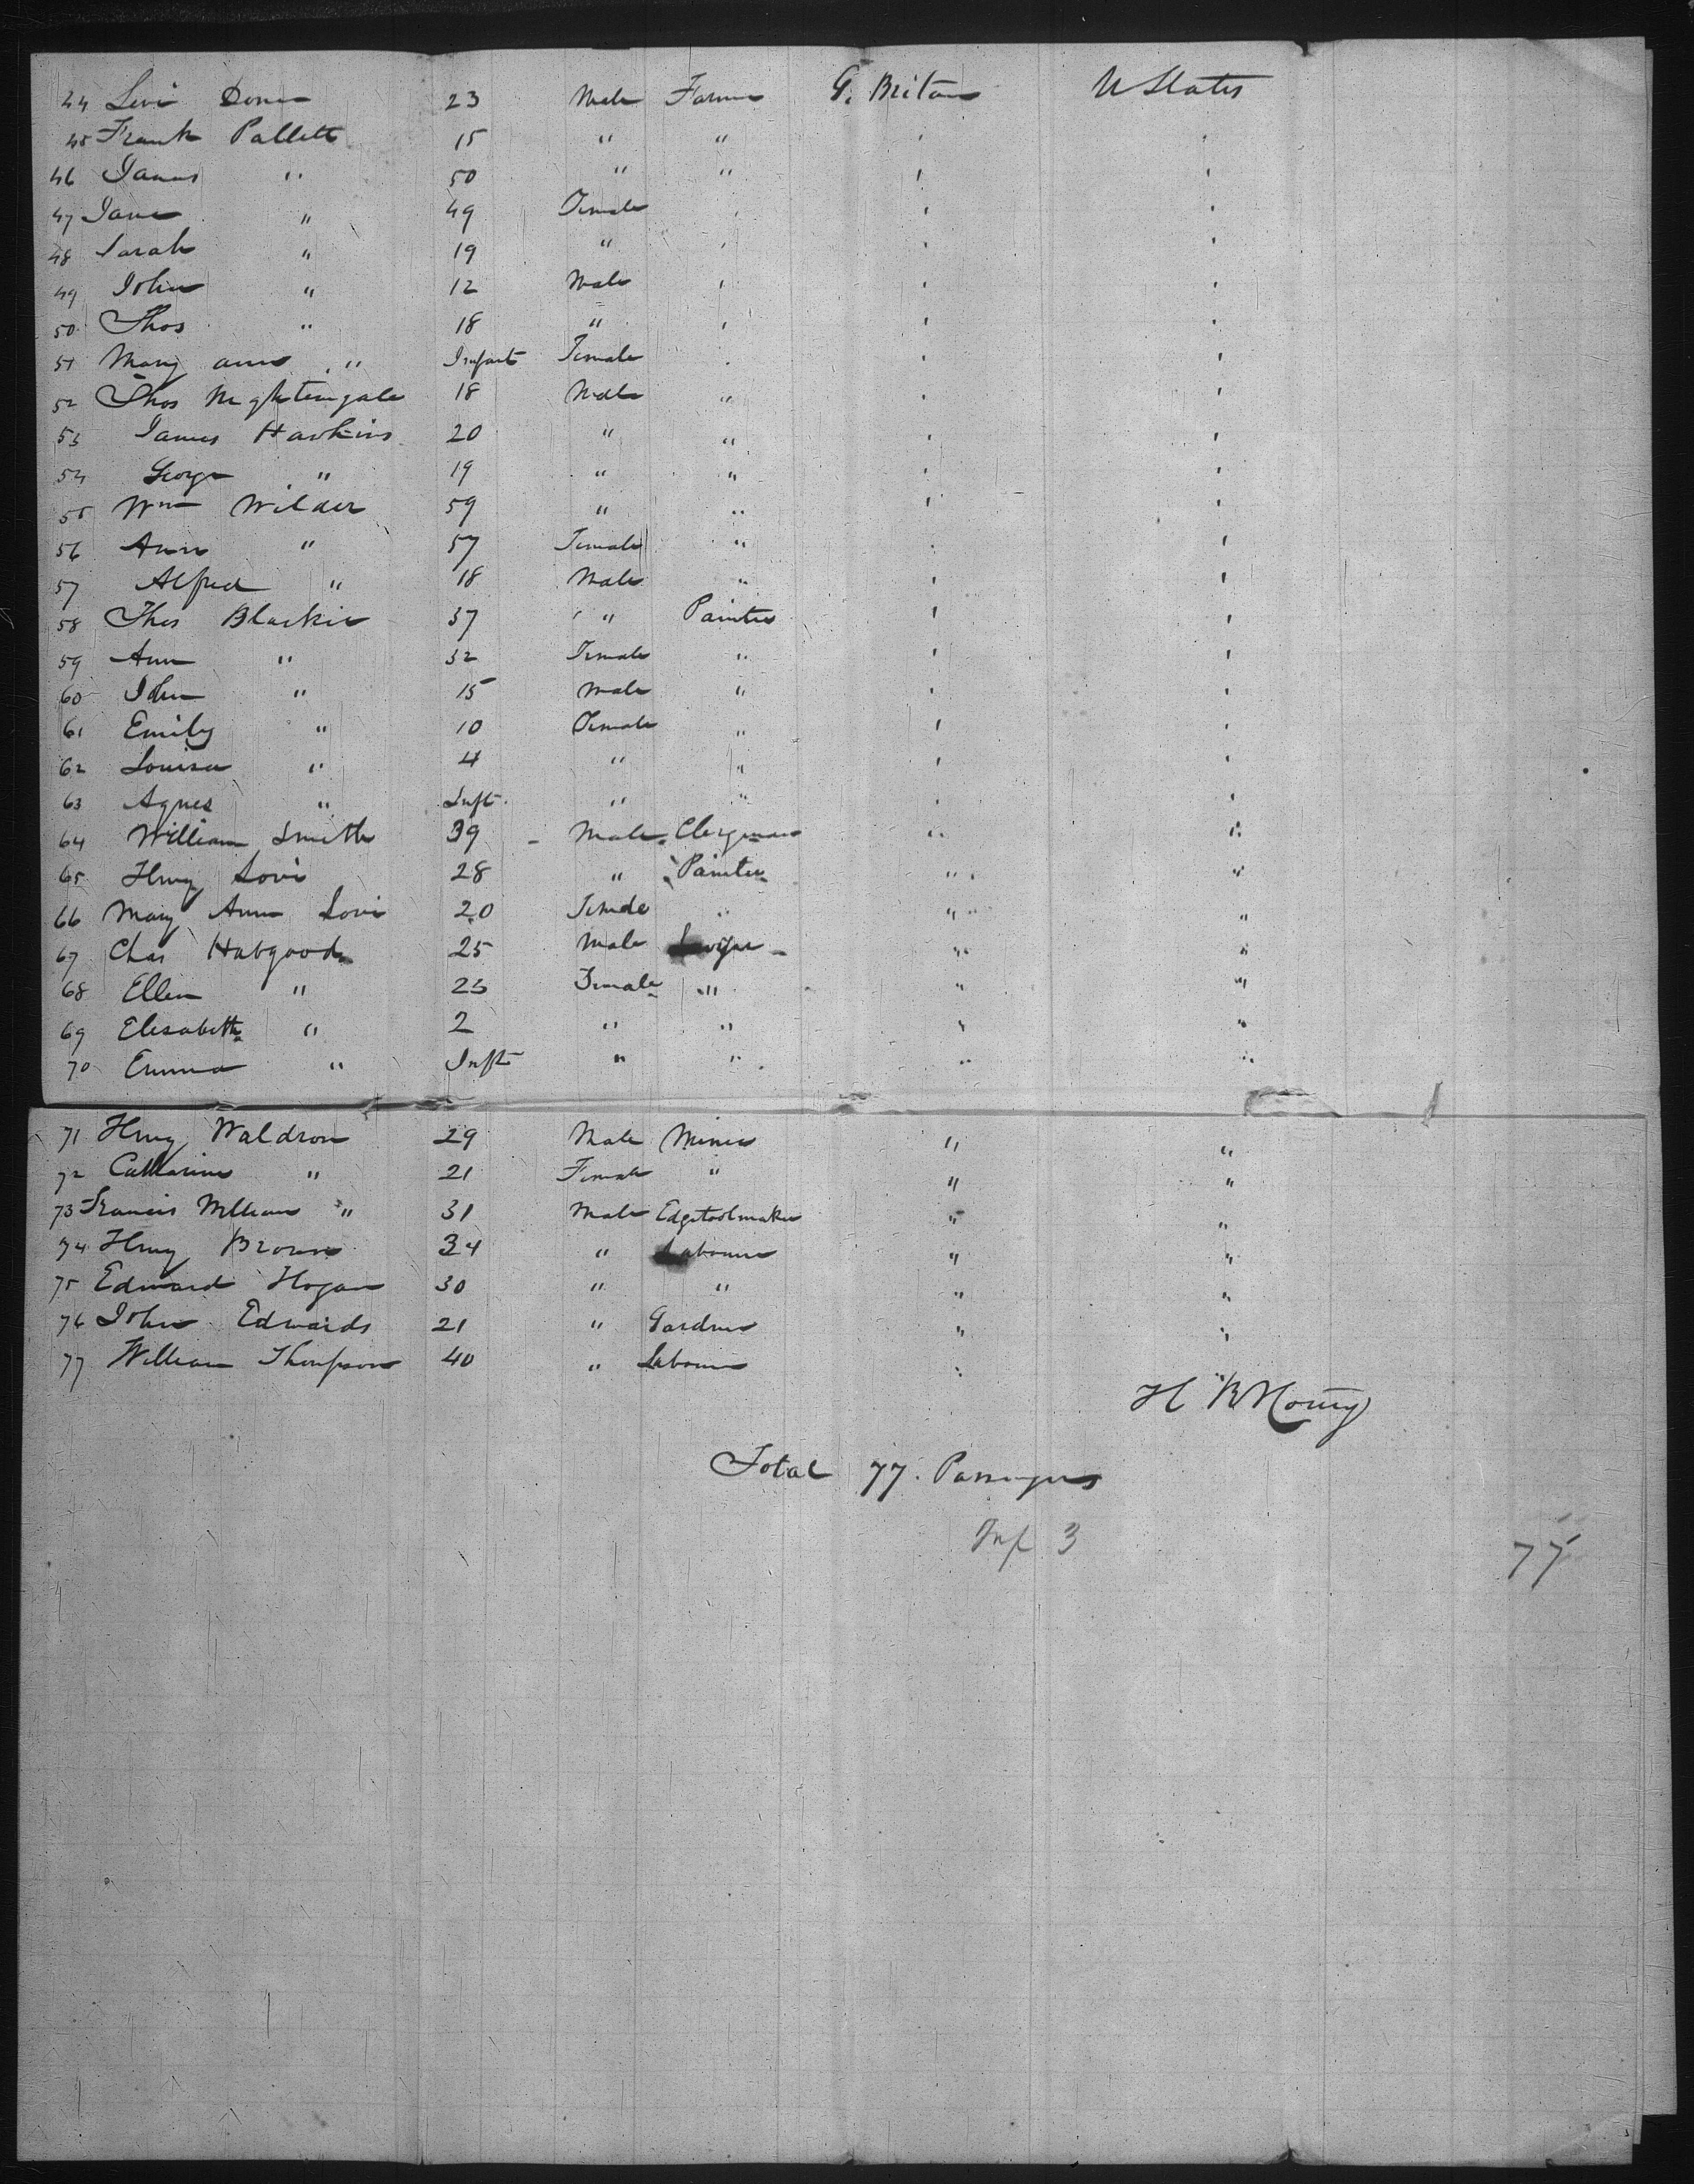 44 Levi 23 Male Farmer G. Britan U States
45 Frank Pallett 15 " " ' '
46 James " 50 " " ' '
47 Jane " 49 Female ' ' '
48 Sarah " 19 " ' ' '
49 John " 12 Male ' ' '
50 Thos " 18 " ' ' '
51 Mary ann " Infant Female ' ' '
52 Thos Nightengale 18 Male " ' '
53 James Hawkins 20 " " ' '
54 George " 19 " " ' '
55 Wm Wilder 59 " " ' '
56 Ann " 57 Female " ' '
57 Alfred " 18 Male " ' '
58 Thos Blackie 37 " Painter ' '
59 Ann " 32 Female " ' '
60 John " 15 Male " ' '
61 Emily " 10 Female " ' '
62 Louisa " 4 " " ' '
63 Agnes " Inft " " ' '
64 William Smith 39 Male Clergman " "
65 Hny Lovi 28 " Painter " "
66 Mary Ann Lovi 20 Female " " "
67 Chas Habgood 25 Male " "
68 Ellen " 23 Female " " "
69 Elisabeth " 2 " " " "
70 Emma " Inft " " " "
71 Hny Waldron 29 Male Miner " "
72 Catharine " 21 Female " " "
73 Francis William " 31 Male Edgetoolmaker " "
74 Hny Brown 34 " Labourer " "
75 Edward Hogan 30 " " " "
76 John Edwards 21 " Gardner " "
77 William Thompson 40 " Labourer " "
H
Total 77. Passengers
Inf 3
77